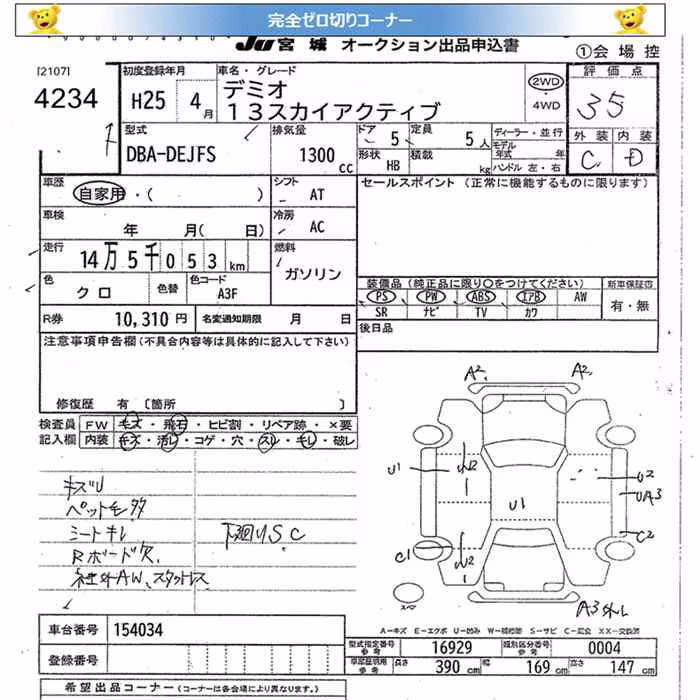 完全ゼロ切りコーナー
JU宮城 オークション出品申込書
①会場控
[2107]
4234
初度登録年月
H25 4月
車名・グレード
デミオ
13スカイアクティブ
2WD
・
4WD
評価点
35
外装 内装
C D
型式
DBA-DEJFS
排気量
1300cc
ドア 5
定員 5人
形状 HB
積載 kg
ディーラー・並行
モデル年式 年
ハンドル 左・右
車歴
自家用・( )
シフト
AT
セールスポイント (正常に機能するものに限ります)
車検
年 月( 日)
冷房
AC
走行
14万5千053km
燃料
ガソリン
色
クロ
色替
色コード
A3F
装備品(純正品に限り○をつけてください)
新車保証書
PS PW ABS エアB AW
SR ナビ TV カワ
有・無
R券 10,310円
名変通知期限 月 日
後日品
注意事項申告欄(不具合内容等は具体的に記入して下さい)
修復歴 有 〔箇所 〕
検査員記入欄
FW キズ・飛石・ヒビ割・リペア跡・×要
内装 キズ・汚レ・コゲ・穴・スレ・キレ・破レ
キズU
ペットモ多
シートキレ
Rボード欠
社外AW、スタットレス
下廻りS.C
A2 A2
U1 U2 U2
U1
UA3
C2
C1 U2
スペア
A3外し
A-キズ E-エクボ U-凹み W-補修跡 S-サビ C-腐食 XX-交換済
車台番号 154034
登録番号
型式指定番号参考 16929
類別区分番号参考 0004
車検証明用参考 長さ 390cm 幅 169cm 高さ 147cm
希望出品コーナー(コーナーは各会場により異なります)